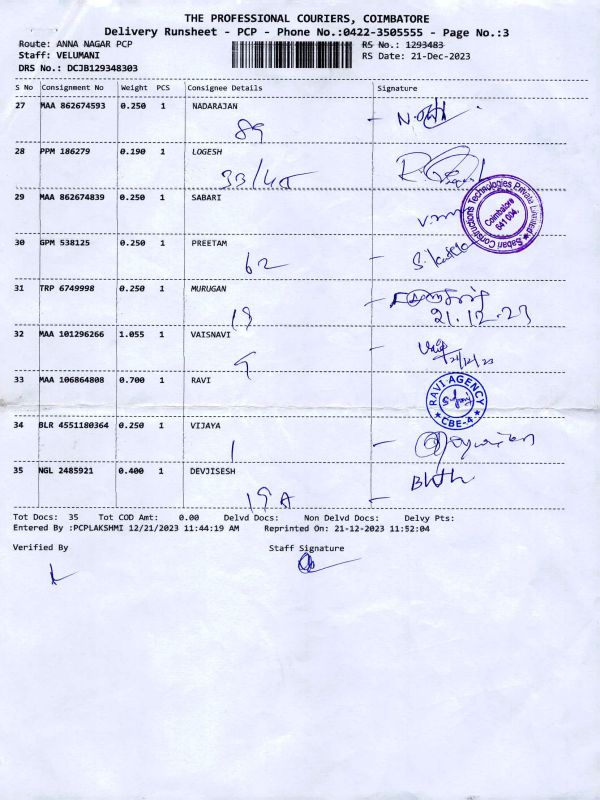 THE PROFESSIONAL COURIERS, COIMBATORE
Delivery Runsheet - PCP - Phone No.:0422-3505555 - Page No.:3
Route: ANNA NAGAR PCP
RS No.: 1293483
Staff: VELUMANI
RS Date: 21-Dec-2023
DRS No.: DCJB129348303
S No Consignment No Weight PCS Consignee Details Signature
27 MAA 862674593 0.250 1 NADARAJAN
89
28 PPM 186279 0.190 1 LOGESH
33/45
29 MAA 862674839 0.250 1 SABARI
Sabari Constructions Technologies Private Limited
Coimbatore
641 004.
30 GPM 538125 0.250 1 PREETAM
62
31 TRP 6749998 0.250 1 MURUGAN
19
21.12.23
32 MAA 101296266 1.055 1 VAISNAVI
9
21/12/23
33 MAA 106864808 0.700 1 RAVI
RAVI AGENCY
CBE-4
34 BLR 4551180364 0.250 1 VIJAYA
1
35 NGL 2485921 0.400 1 DEVJISESH
19 A
Tot Docs: 35 Tot COD Amt: 0.00 Delvd Docs: Non Delvd Docs: Delvy Pts:
Entered By :PCPLAKSHMI 12/21/2023 11:44:19 AM Reprinted On: 21-12-2023 11:52:04
Verified By Staff Signature